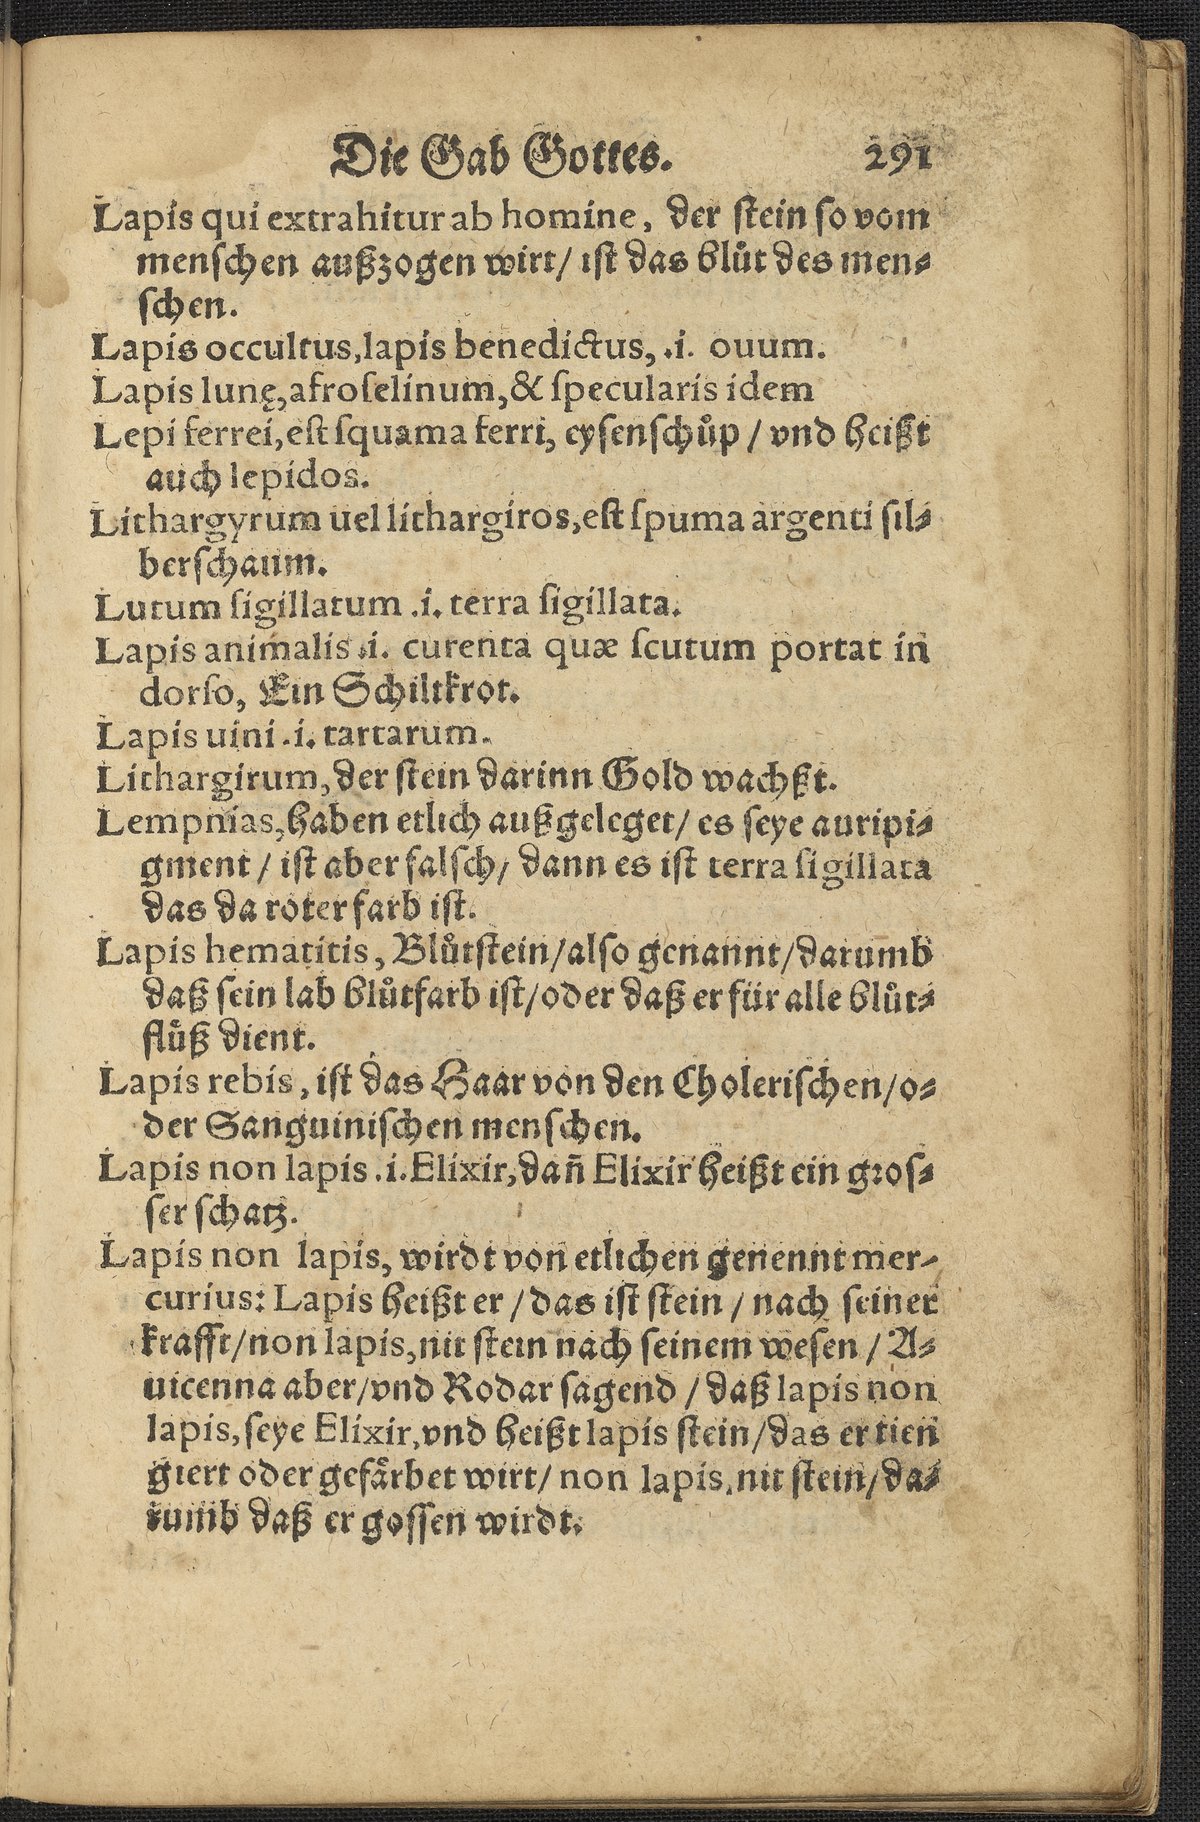 Die Gab Gottes. 291
Lapis qui extrahitur ab homine, der stein so vom
menschen außzogen wirt/ ist das blůt des men⸗
schen.
Lapis occultus, lapis benedictus, .i. ouum.
Lapis lunę, afroselinum, & specularis idem
Lepi ferrei, est squama ferri, eysenschůp / vnd heißt
auch lepidos.
Lithargyrum uel lithargiros, est spuma argenti sil⸗
berschaum.
Lutum sigillatum .i. terra sigillata.
Lapis animalis .i. curenta quæ scutum portat in
dorso, Ein Schiltkrot.
Lapis uini .i. tartarum.
Lithargirum, der stein darinn Gold wachßt.
Lempnias, haben etlich außgeleget/ es seye auripi⸗
gment / ist aber falsch/ dann es ist terra sigillata
das da roter farb ist.
Lapis hematitis, Blůtstein/also genannt/darumb
daß sein lab blůtfarb ist/oder daß er für alle blůt⸗
flůß dient.
Lapis rebis, ist das Haar von den Cholerischen/o⸗
der Sanguinischen menschen.
Lapis non lapis .i. Elixir, dañ Elixir heißt ein gros⸗
ser schatz.
Lapis non lapis, wirdt von etlichen genennt mer⸗
curius: Lapis heißt er / das ist stein / nach seiner
krafft/non lapis, nit stein nach seinem wesen / A⸗
uicenna aber/vnd Rodar sagend / daß lapis non
lapis, seye Elixir, vnd heißt lapis stein/das er tien
giert oder gefårbet wirt/ non lapis, nit stein/da⸗
rumb daß er gossen wirdt.